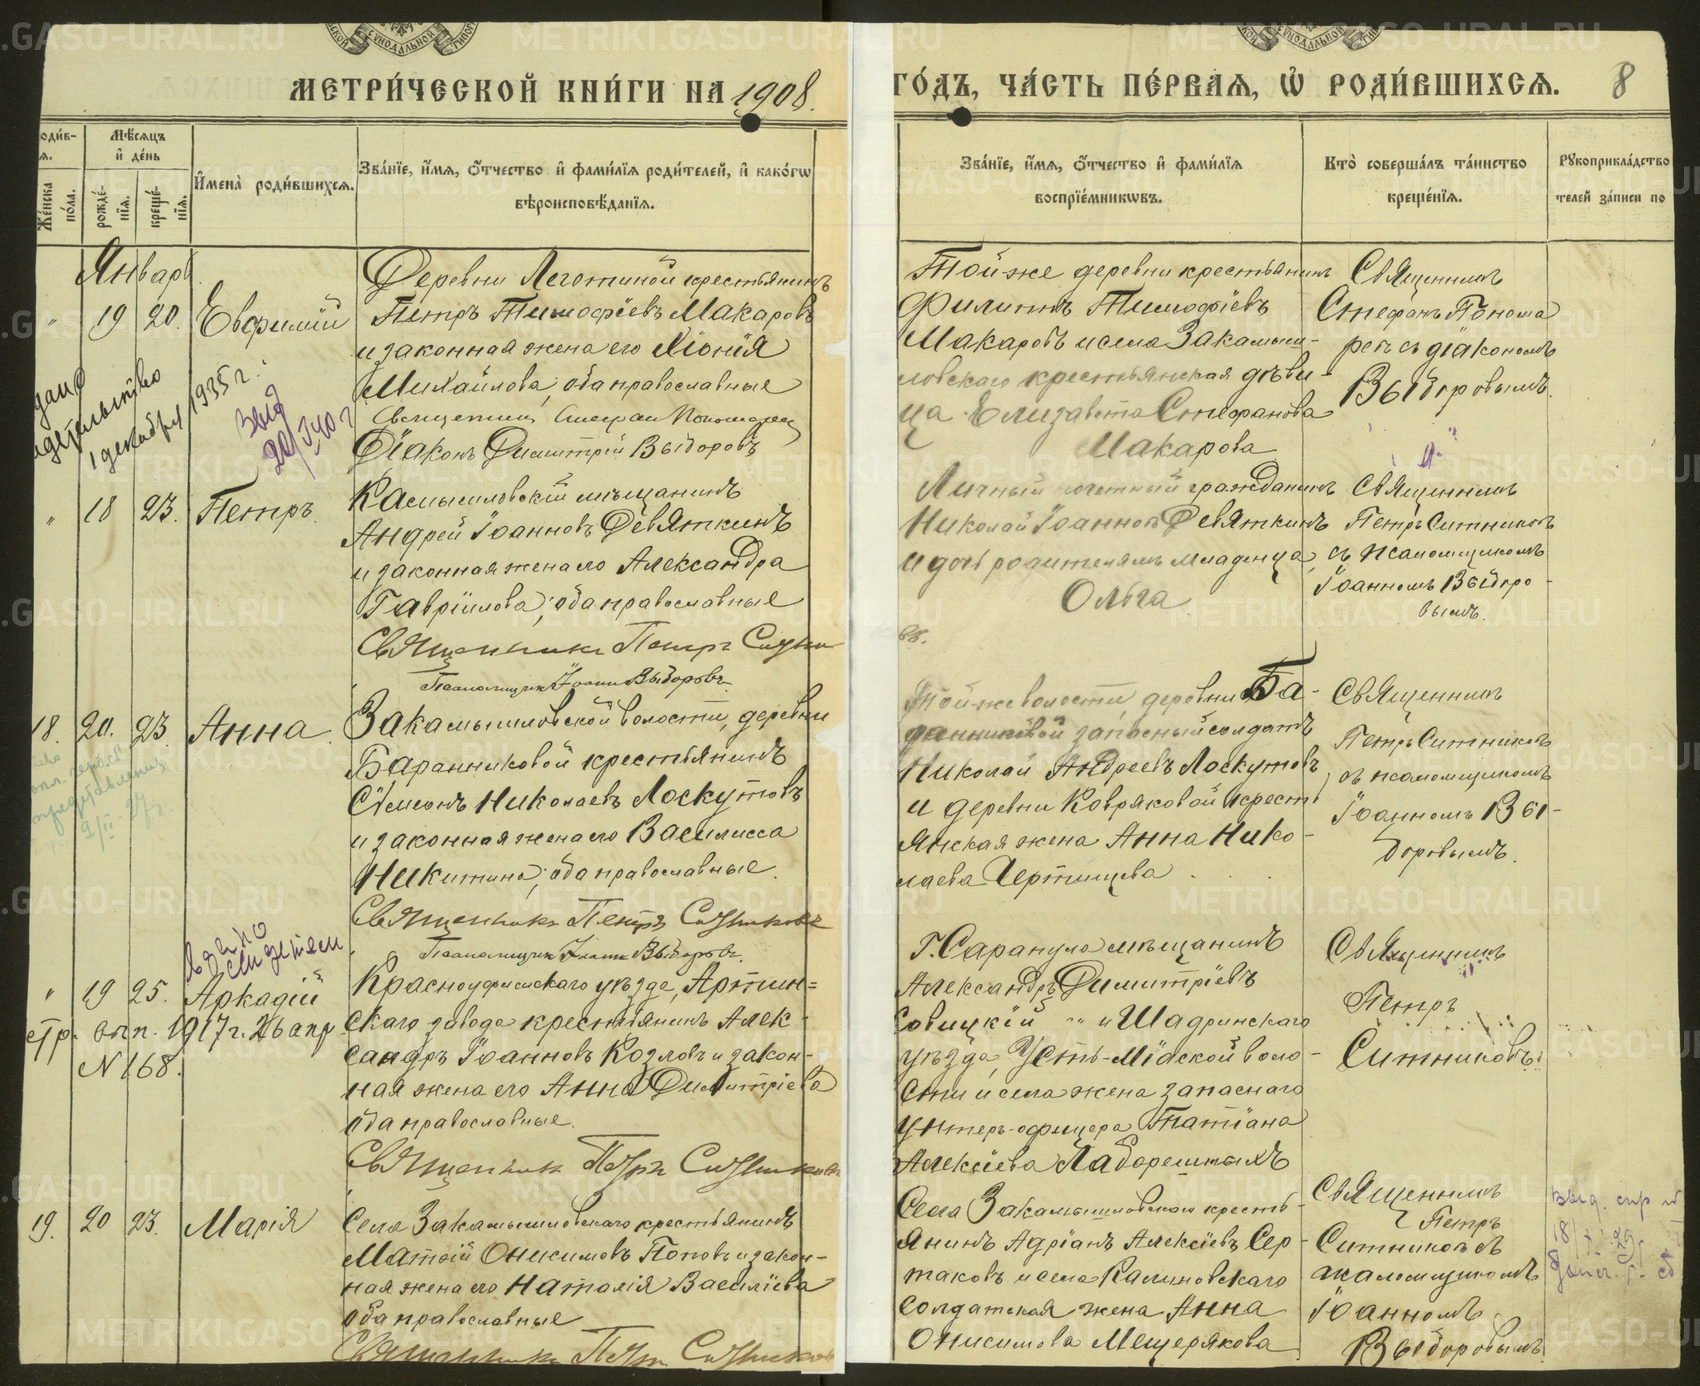 МЕТРИ́ЧЕСКОЙ КНИ́ГИ НА 1908.
ГО́ДЪ, ЧА́СТЬ ПЕ́РВАЯ, Ѽ РОДИ́ВШИХСЯ. 8
Мѣсяцъ и҆ де́нь
Же́нска по́ла.
рожде́нїя.
креще́нїя.
И҆мена̀ роди́вшихся.
Зва́нїе, и҆́мя, ѻ҆́тчество и҆ фами́лїя роди́телей, и҆ како́гѡ
вѣроисповѣ́данїя.
Зва́нїе, и҆́мя, ѻ҆́тчество и҆ фами́лїя
воспрїе́мникѡвъ.
Кто̀ соверша́лъ та́инство
креще́нїя.
Рꙋкоприкла́дство
телей за́писи по
Январь
" 19 20. Евфимій
Деревни Леготиной крестьянинъ
Петръ Тимофіевъ Макаровъ
и законная жена его Хіонія
Михайлова, оба православные
Священник Стефан Пономарев
Діаконъ Димитрій Выборовъ
Той-же деревни крестьянинъ
Филиппъ Тимофіевъ
Макаровъ и села Закамыш-
ловскаго крестьянская дѣви-
ца Елизавета Стефанова
Макарова
Священникъ
Стефанъ Понома
ревъ съ діакономъ
Выборовымъ.
1 декабря 1935 г.
" 18 23. Петръ.
Камышловскій мѣщанинъ
Андрей Іоанновъ Девяткинъ
и законная жена его Александра
Гавріилова; оба православные
Священникъ Петръ Ситник
Псаломщик Іоанн Выборовъ
Личный почетный гражданинъ
Николай Іоанновъ Девяткинъ
и дочь родителямъ младенца
Ольга
Священникъ
Петръ Ситниковъ
съ псаломщикомъ
Іоанномъ Выборо-
вымъ.
18. 20. 23. Анна.
Закамышловской волости, деревни
Баранниковой крестьянинъ
Симеонъ Николаевъ Лоскутовъ
и законная жена его Василисса
Никитина; оба православные.
Священникъ Петръ Ситниковъ
Псаломщик Іоанн Выборовъ.
Той же волости деревни Ба-
ранниковой запасный солдатъ
Николай Андреевъ Лоскутовъ
и деревни Ковряковой крест
янская жена Анна Нико-
лаева Чертищева
Священникъ
Петръ Ситниковъ
съ псаломщикомъ
Іоанномъ Вы-
боровымъ.
" 19 25. Аркадій
стр. вып. 1917 г. 26 апр.
N 168.
Красноуфимскаго уѣзда, Артин-
скаго завода крестьянинъ Алек-
сандръ Іоанновъ Козловъ и закон-
ная жена его Анна Димитріева
оба православные.
Священник Петръ Ситников
Г. Сарапула мѣщанинъ
Александръ Димитріевъ
и Шадринскаго
уѣзда, Усть-Міасской воло-
сти и села жена запаснаго
унтеръ-офицера Татіана
Алексіева
Священникъ
Петръ
Ситниковъ.
19. 20 23. Марія
Села Закамышловскаго крестьянинъ
Матѳій Онисимовъ Поповъ и закон-
ная жена его Наталія Василіева
оба православные
Священникъ Петръ Ситников
Села Закамышловскаго кресть-
янинъ Адріанъ Алексіевъ Сер-
таковъ и села Калиновскаго
солдатская жена Анна
Онисимова Мещерякова
Священникъ
Петръ
Ситниковъ съ
псаломщикомъ
Іоанномъ
Выборовымъ
METRIKI.GASO-URAL.RU